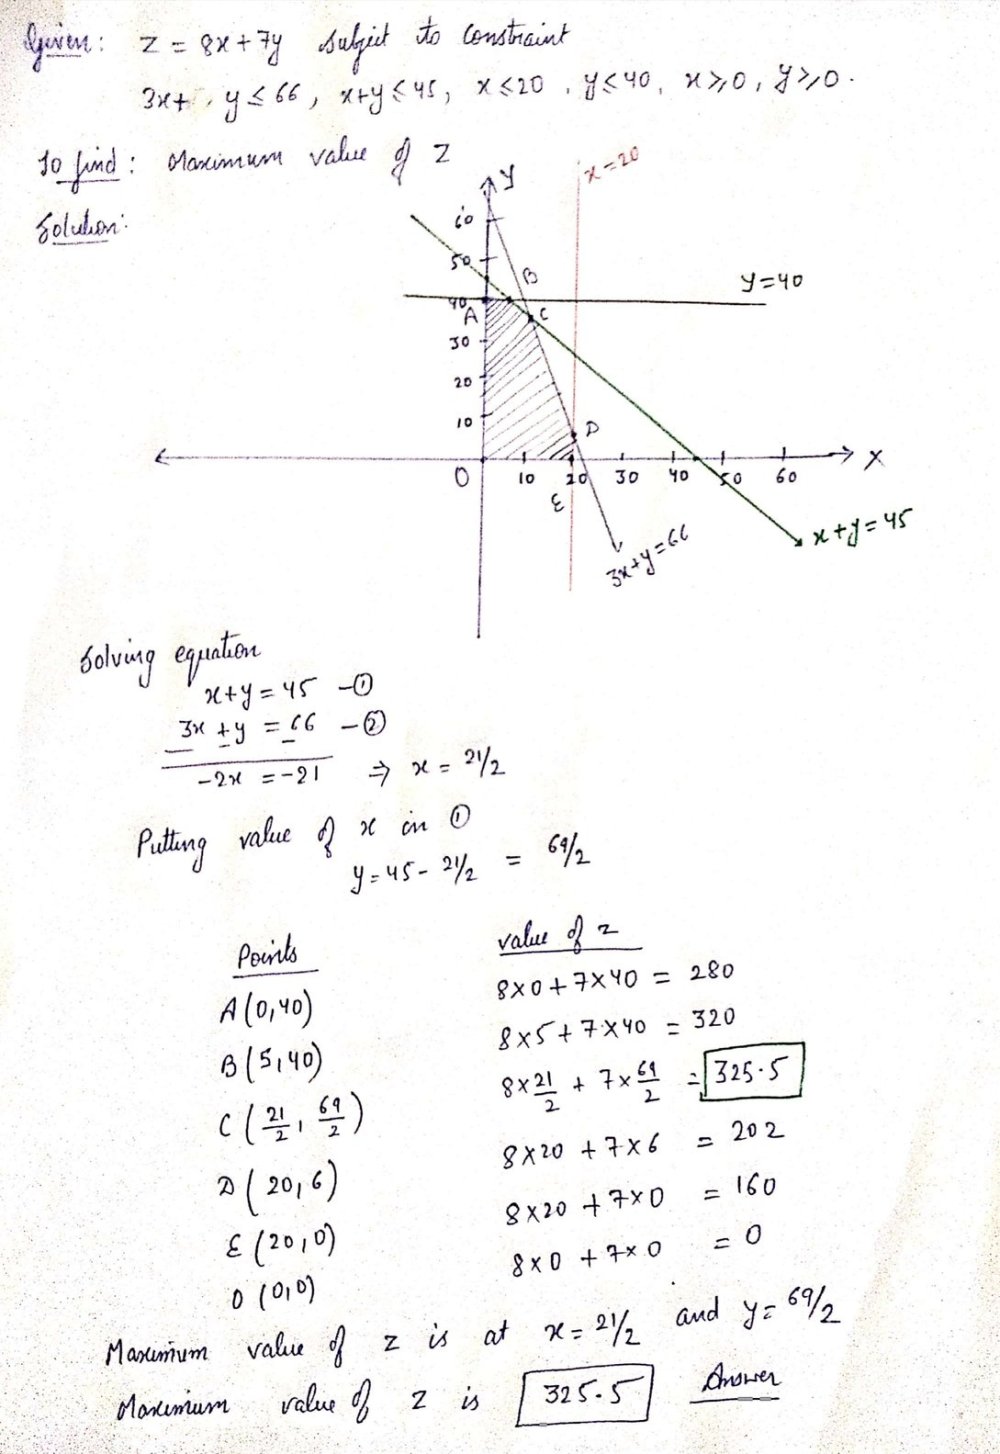 Given: Z = 8x+7y subject to constraint
3x+ y ≤ 66, x+y ≤ 45, x ≤ 20, y ≤ 40, x ≥ 0, y ≥ 0.
To find: Maximum value of Z
Solution:
x=20
Y
60
50
B
y=40
40
A
C
30
20
10
D
O
10
20
30
40
50
60
X
E
3x+y=66
x+y=45
Solving equation
x+y = 45 -①
3x+y = 66 -②
- - -
-2x = -21 ⇒ x = 21/2
Putting value of x in ①
y = 45 - 21/2 = 69/2
Points value of z
A(0,40) 8×0+7×40 = 280
B(5,40) 8×5+7×40 = 320
C(21/2, 69/2) 8×21/2 + 7×69/2 = 325.5
D(20,6) 8×20+7×6 = 202
E(20,0) 8×20+7×0 = 160
O(0,0) 8×0+7×0 = 0
Maximum value of z is at x = 21/2 and y = 69/2
Maximum value of z is 325.5 Answer